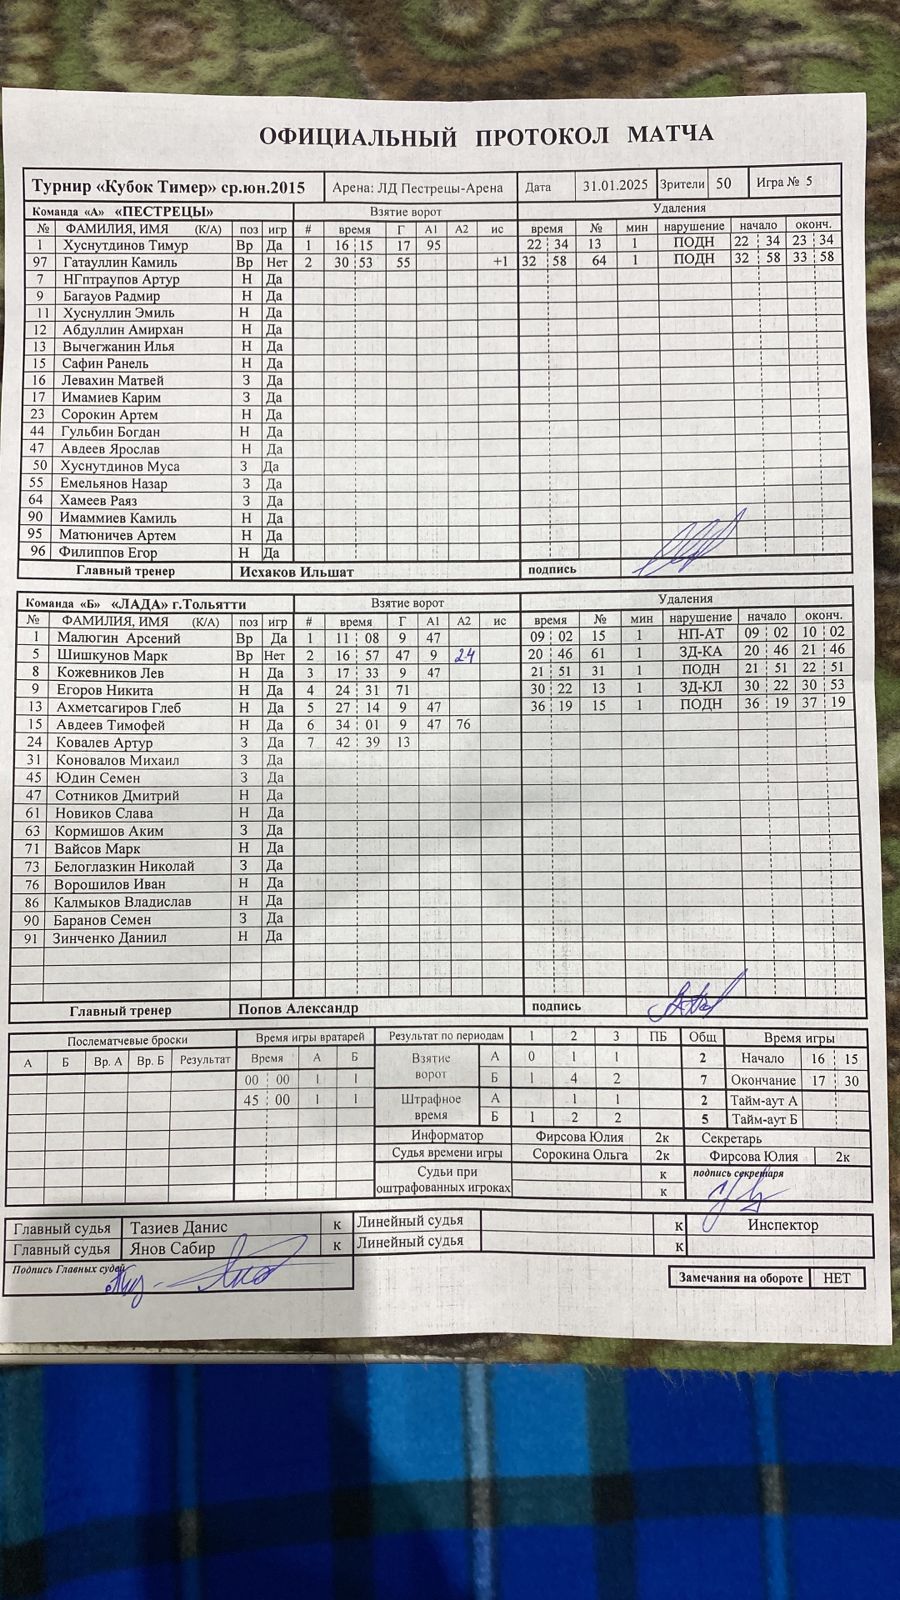 ОФИЦИАЛЬНЫЙ ПРОТОКОЛ МАТЧА
Турнир «Кубок Тимер» ср.юн.2015 Арена: ЛД Пестрецы-Арена Дата 31.01.2025 Зрители 50 Игра № 5
Команда «А» «ПЕСТРЕЦЫ» Взятие ворот Удаления
№ ФАМИЛИЯ, ИМЯ (К/А) поз игр # время Г А1 А2 ис время № мин нарушение начало оконч.
1 Хуснутдинов Тимур Вр Да 1 16 15 17 95 22 34 13 1 ПОДН 22 34 23 34
97 Гатауллин Камиль Вр Нет 2 30 53 55 +1 32 58 64 1 ПОДН 32 58 33 58
7 НГптраупов Артур Н Да
9 Багауов Радмир Н Да
11 Хуснуллин Эмиль Н Да
12 Абдуллин Амирхан Н Да
13 Вычегжанин Илья Н Да
15 Сафин Ранель Н Да
16 Левахин Матвей З Да
17 Имамиев Карим З Да
23 Сорокин Артем Н Да
44 Гульбин Богдан Н Да
47 Авдеев Ярослав Н Да
50 Хуснутдинов Муса З Да
55 Емельянов Назар З Да
64 Хамеев Раяз З Да
90 Имаммиев Камиль Н Да
95 Матюничев Артем Н Да
96 Филиппов Егор Н Да
Главный тренер Исхаков Ильшат подпись
Команда «Б» «ЛАДА» г.Тольятти Взятие ворот Удаления
№ ФАМИЛИЯ, ИМЯ (К/А) поз игр # время Г А1 А2 ис время № мин нарушение начало оконч.
1 Малюгин Арсений Вр Да 1 11 08 9 47 09 02 15 1 НП-АТ 09 02 10 02
5 Шишкунов Марк Вр Нет 2 16 57 47 9 24 20 46 61 1 ЗД-КА 20 46 21 46
8 Кожевников Лев Н Да 3 17 33 9 47 21 51 31 1 ПОДН 21 51 22 51
9 Егоров Никита Н Да 4 24 31 71 30 22 13 1 ЗД-КЛ 30 22 30 53
13 Ахметсагиров Глеб Н Да 5 27 14 9 47 36 19 15 1 ПОДН 36 19 37 19
15 Авдеев Тимофей Н Да 6 34 01 9 47 76
24 Ковалев Артур З Да 7 42 39 13
31 Коновалов Михаил З Да
45 Юдин Семен З Да
47 Сотников Дмитрий Н Да
61 Новиков Слава Н Да
63 Кормишов Аким З Да
71 Вайсов Марк Н Да
73 Белоглазкин Николай З Да
76 Ворошилов Иван Н Да
86 Калмыков Владислав Н Да
90 Баранов Семен З Да
91 Зинченко Даниил Н Да
Главный тренер Попов Александр подпись
Послематчевые броски Время игры вратарей Результат по периодам 1 2 3 ПБ Общ Время игры
А Б Вр. А Вр. Б Результат Время А Б Взятие ворот А 0 1 1 2 Начало 16 15
00 00 1 1 Б 1 4 2 7 Окончание 17 30
45 00 1 1 Штрафное время А 1 1 2 Тайм-аут А
Б 1 2 2 5 Тайм-аут Б
Информатор Фирсова Юлия 2к Секретарь
Судья времени игры Сорокина Ольга 2к Фирсова Юлия 2к
Судьи при оштрафованных игроках к подпись секретаря
к
Главный судья Тазиев Данис к Линейный судья к Инспектор
Главный судья Янов Сабир к Линейный судья к
Подпись Главных судей
Замечания на обороте НЕТ